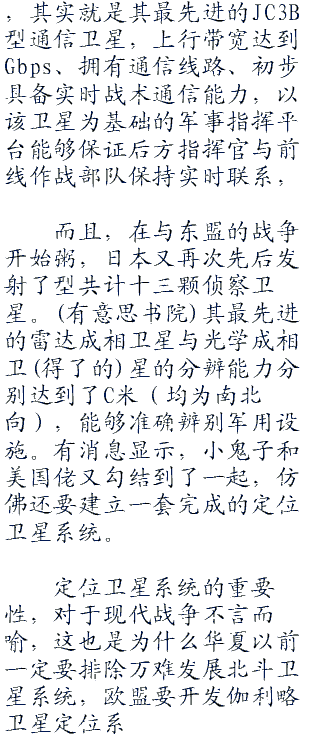 ，其实就是其最先进的JC3B
型通信卫星，上行带宽达到
Gbps、拥有通信线路、初步
具备实时战术通信能力，以
该卫星为基础的军事指挥平
台能够保证后方指挥官与前
线作战部队保持实时联系，
而且，在与东盟的战争
开始粥，日本又再次先后发
射了型共计十三颗侦察卫
星。(有意思书院)其最先进
的雷达成相卫星与光学成相
卫(得了的)星的分辨能力分
别达到了C米（均为南北
向），能够准确辨别军用设
施。有消息显示，小鬼子和
美国佬又勾结到了一起，仿
佛还要建立一套完成的定位
卫星系统。
定位卫星系统的重要
性，对于现代战争不言而
喻，这也是为什么华夏以前
一定要排除万难发展北斗卫
星系统，欧盟要开发伽利略
卫星定位系